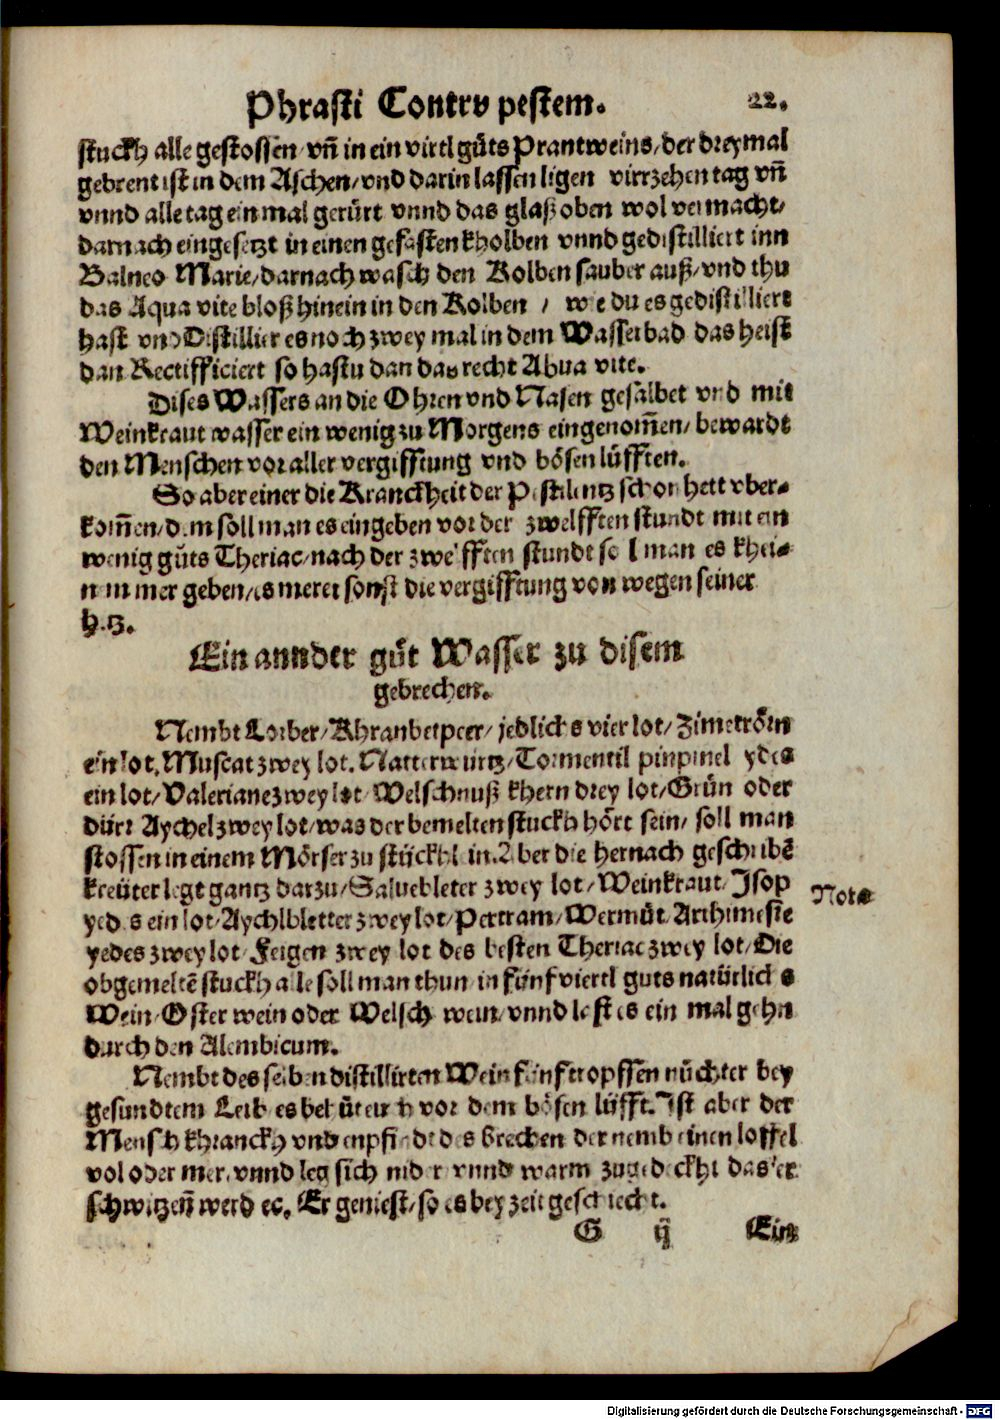 Phrasti Contrv pestem. 22.
stuckh alle gestossen/ vñ in ein virtl gůts Prantweins/ der dreymal
gebrent ist in dem Aschen/ vnd darin lassen ligen virrzehen tag vñ
vnnd alle tag ein mal gerürt vnnd das glaß oben wol vermacht/
darnach eingesetzt in einen gefasten kholben vnnd gedistilliert inn
Balneo Marie/ darnach wasch den Kolben sauber auß/ vnd thu
das Aqua vite bloß hinein in den Kolben / wie du es gedistilliert
hast vnd Distillier es noch zwey mal in dem Wasserbad das heist
dan Rectifficiert so hastu dan das recht Abua vite.
Dises Wassers an die Ohren vnd Nasen gesalbet vnd mit
Weinkraut wasser ein wenig zu Morgens eingenom̄en/ bewardt
den Menschen vor aller vergifftung vnd bösen lüfften.
So aber einer die Kranckheit der Pestilentz schon hett vber-
kom̄en/ dem soll man es eingeben vor der zwelfften stundt mit ein
wenig gůts Theriac/ nach der zwelfften stundt sol man es khei-
n m mer geben/ es meret sonst die vergifftung von wegen seiner
hitz.
Ein annder gůt Wasser zu disem
gebrechen.
Nembt Lorber/ Khranbetpeer/ jedlichs vier lot/ Zimetrörn
ein lot. Muscat zwey lot. Natterwurtz/ Tormentil pinpinel ydes
ein lot/ Valeriane zwey lot/ Welschnuß khern drey lot/ Grün oder
dürr Aychel zwey lot/ was der bemelten stuckh hört sein/ soll man
stossen in einem Mörser zu stückhl in. Aber die hernach geschribē
kreüter legt gantz darzu/ Saluebleter zwey lot/ Weinkraut/ Isop
yedes ein lot/ Aychlbletter zwey lot/ Pertram/ Wermůt/ Arthimesie
Nota
yedes zwey lot/ Feigen zwey lot des besten Theriac zwey lot/ Die
obgemeltē stuckh alle soll man thun in fünf viertl guts natürlichs
Wein/ Oster wein oder Welsch wein/ vnnd lest es ein mal gehn
durch den Alembicum.
Nembt des selben distillirten Wein fünf tropffen nüchter bey
gesundtem Leib es behüten h vor dem bösen lüfft. Ist aber der
Mensch khranckh vnd enpfindt des brechen der nemb einen loffel
vol oder mer. vnnd leg sich nider vnnd warm zugedeckht das er
schwitzen̄ werd ec. Er geniest/ so es bey zeit geschiecht.
G ij Ein
Digitalisierung gefördert durch die Deutsche Forschungsgemeinschaft - DFG